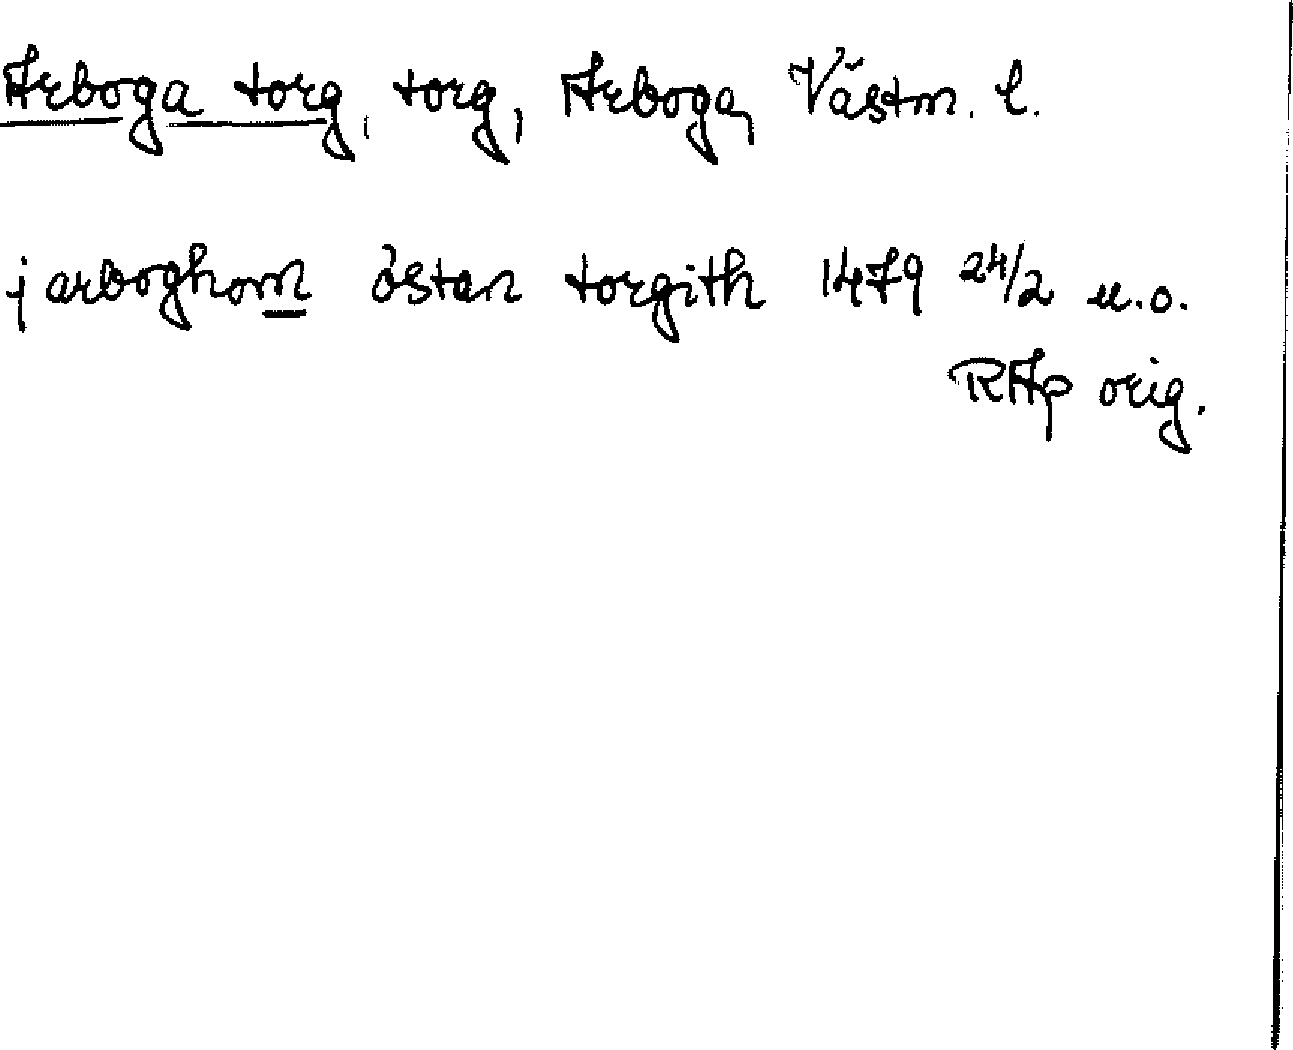 Arboga torg, torg, Arboga, Västm. l.
j arboghom östan torgith 1479 24/2 u.o.
RAp orig.